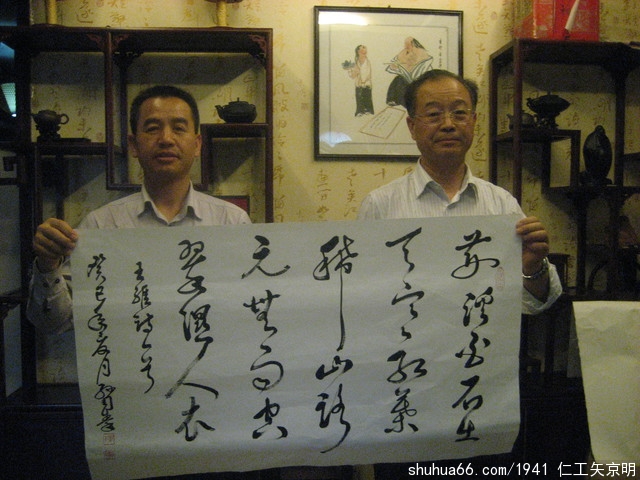 荆溪白石出
天寒紅葉
稀山路
元無雨空
翠濕人衣
王維詩一首
癸巳年夏月
shuhua66.com/1941 仁工矢京明